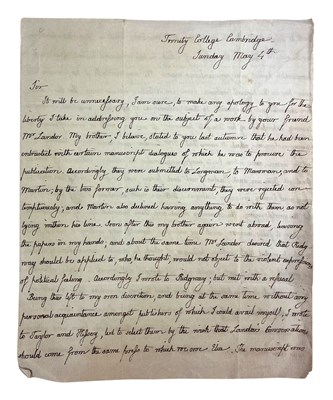 Trinity College Cambridge.
Sunday May 4th
Sir
It will be unnecessary, I am sure, to make any apology to you for the
liberty I take in addressing you on the subject of a work by your friend
Mr Landor. My brother, I believe, stated to you last autumn that he had been
entrusted with certain manuscript dialogues of which he was to procure the
publication. Accordingly they were submitted to Longman, to Mawman, and to
Martin; by the two former, such is their discernment, they were rejected con-
temptuously, and Martin also declined having anything to do with them as not
lying within his line. Soon after this my brother again went abroad, leaving
the papers in my hands; and about the same time Mr Landor desired that Ridg
way should be applied to, who he thought, would not object to the violent expressions
of political feeling. Accordingly I wrote to Ridgway; but met with a refusal
Being thus left to my own discretion, and being at the same time without any
personal acquaintance amongst publishers of which I could avail myself, I wrote
to Taylor and Hessey, led to select them by the wish that Landor's Conversations
should come from the same press to which we owe Elia. The manuscript was